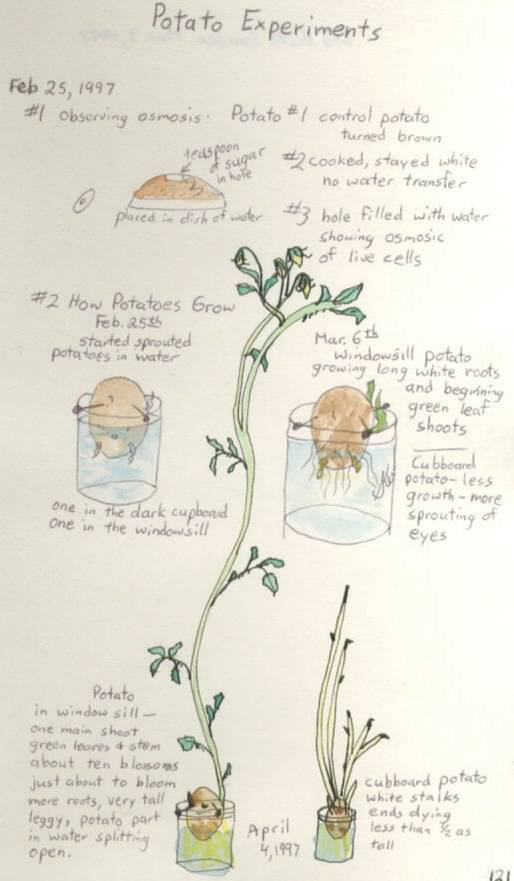 Potato Experiments
Feb 25, 1997
#1 Observing osmosis.
Potato #1 control potato
turned brown
#2 cooked, stayed white
no water transfer
#3 hole filled with water
showing osmosic
of live cells
teaspoon
of sugar
in hole
placed in dish of water
#2 How Potatoes Grow
Feb. 25th
started sprouted
potatoes in water
one in the dark cupboard
one in the windowsill
Mar. 6th
windowsill potato
growing long white roots
and beginning
green leaf
shoots
Cubboard
potato-less
growth-more
sprouting of
eyes
Potato
in window sill—
one main shoot
green leares & stem
about ten blossoms
just about to bloom
more roots, very tall
leggy, potato part
in water splitting
open.
April
4,1997
cubboard potato
white stalks
ends dying
less than ½ as
tall
121